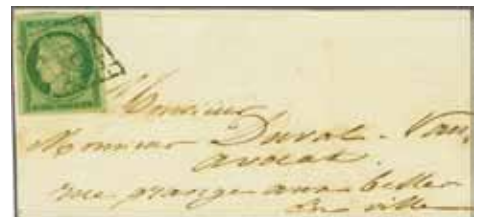 Monsieur
Monsieur Duval - Vau
avocat.
rue grange aux belles
en ville